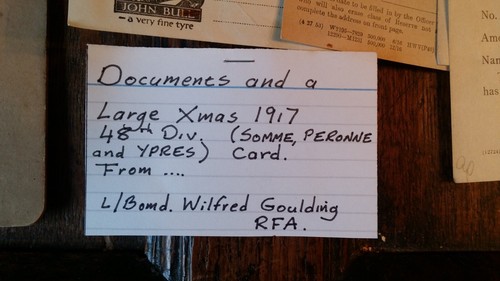 JOHN BULL
– a very fine tyre
to be filled in by the Officer
who will also erase class of Reserve not
complete the address on front page.
No.
Nam
has
Documents and a
Large Xmas 1917
48th Div. (SOMME, PERONNE
and YPRES) Card.
From ....
L/Bomd. Wilfred Goulding
RFA.